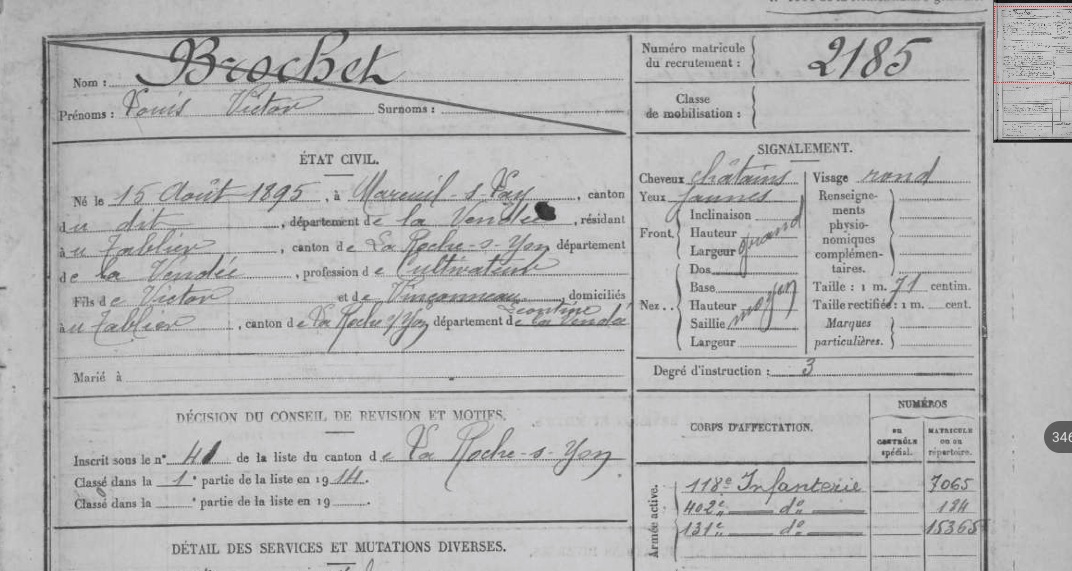 Nom : Brochet
Prénoms : Louis Victor Surnoms :
Numéro matricule du recrutement : 2185
Classe de mobilisation :
ÉTAT CIVIL.
Né le 15 Août 1895, à Mareuil-s-Lay, canton
du dit, département de la Vendée, résidant
à u Tablier, canton de La Roche-s-Yon département
de la Vendée, profession de Cultivateur
Fils de Victor et de Vinçonneau Léontine, domiciliés
à u Tablier, canton de La Roche s/Yon département de la Vendée
Marié à
SIGNALEMENT.
Cheveux châtains Visage rond
Yeux jaunes
Front. Inclinaison
Hauteur
Largeur grand
Nez.. Dos
Base
Hauteur moyen
Saillie
Largeur
Renseignements physionomiques complémentaires.
Taille : 1 m. 71 centim.
Taille rectifiée : 1 m. cent.
Marques particulières.
Degré d'instruction : 3
DÉCISION DU CONSEIL DE REVISION ET MOTIFS.
Inscrit sous le n° 41 de la liste du canton de La Roche-s-Yon
Classé dans la 1e partie de la liste en 1914.
Classé dans la e partie de la liste en 19
DÉTAIL DES SERVICES ET MUTATIONS DIVERSES.
CORPS D'AFFECTATION.
NUMÉROS
au contrôle spécial.
MATRICULE ou au répertoire.
Armée active.
118e Infanterie 7065
402e do 184
131e do 15365
346